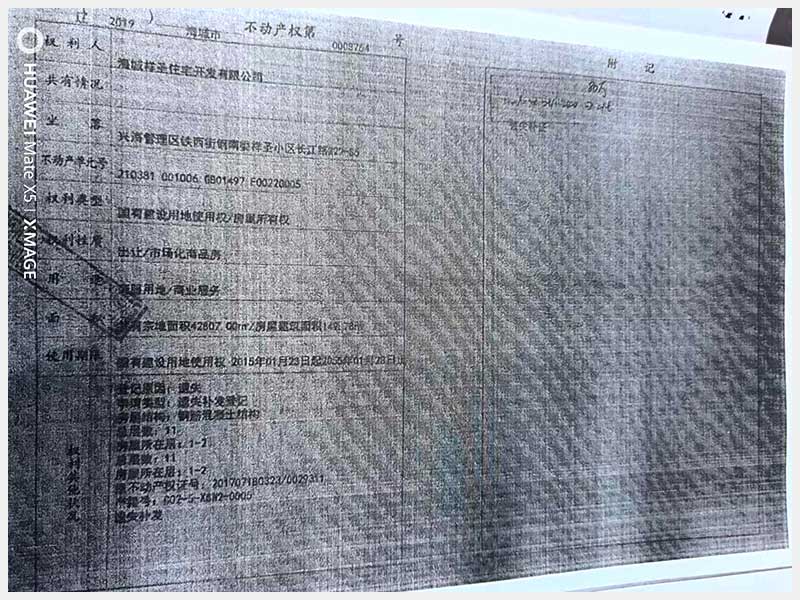 HUAWEI Mate X5 | XMAGE
辽 2019 ) 海城市 不动产权第 0008764 号
附 记
权利人 海城祥圣住宅开发有限公司
共有情况
坐 落 兴海管理区铁西街钢南委祥圣小区长江路
不动产单元号 210381 001006 GB01497 F00220005
权利类型 国有建设用地使用权/房屋所有权
权利性质 出让/市场化商品房
用 途 用地/商业服务
面 积 宗地面积42807.00㎡/房屋建筑面积
使用期限 国有建设用地使用权 2015年01月23日起2055年01月23日止
权利其他状况
登记原因：遗失
遗失补发登记
房屋结构：钢筋混凝土结构
总层数：11
房屋所在层：1-2
总层数：11
房屋所在层：1-2
不动产权证号：201707180323/0029311
遗失补发
遗失补证